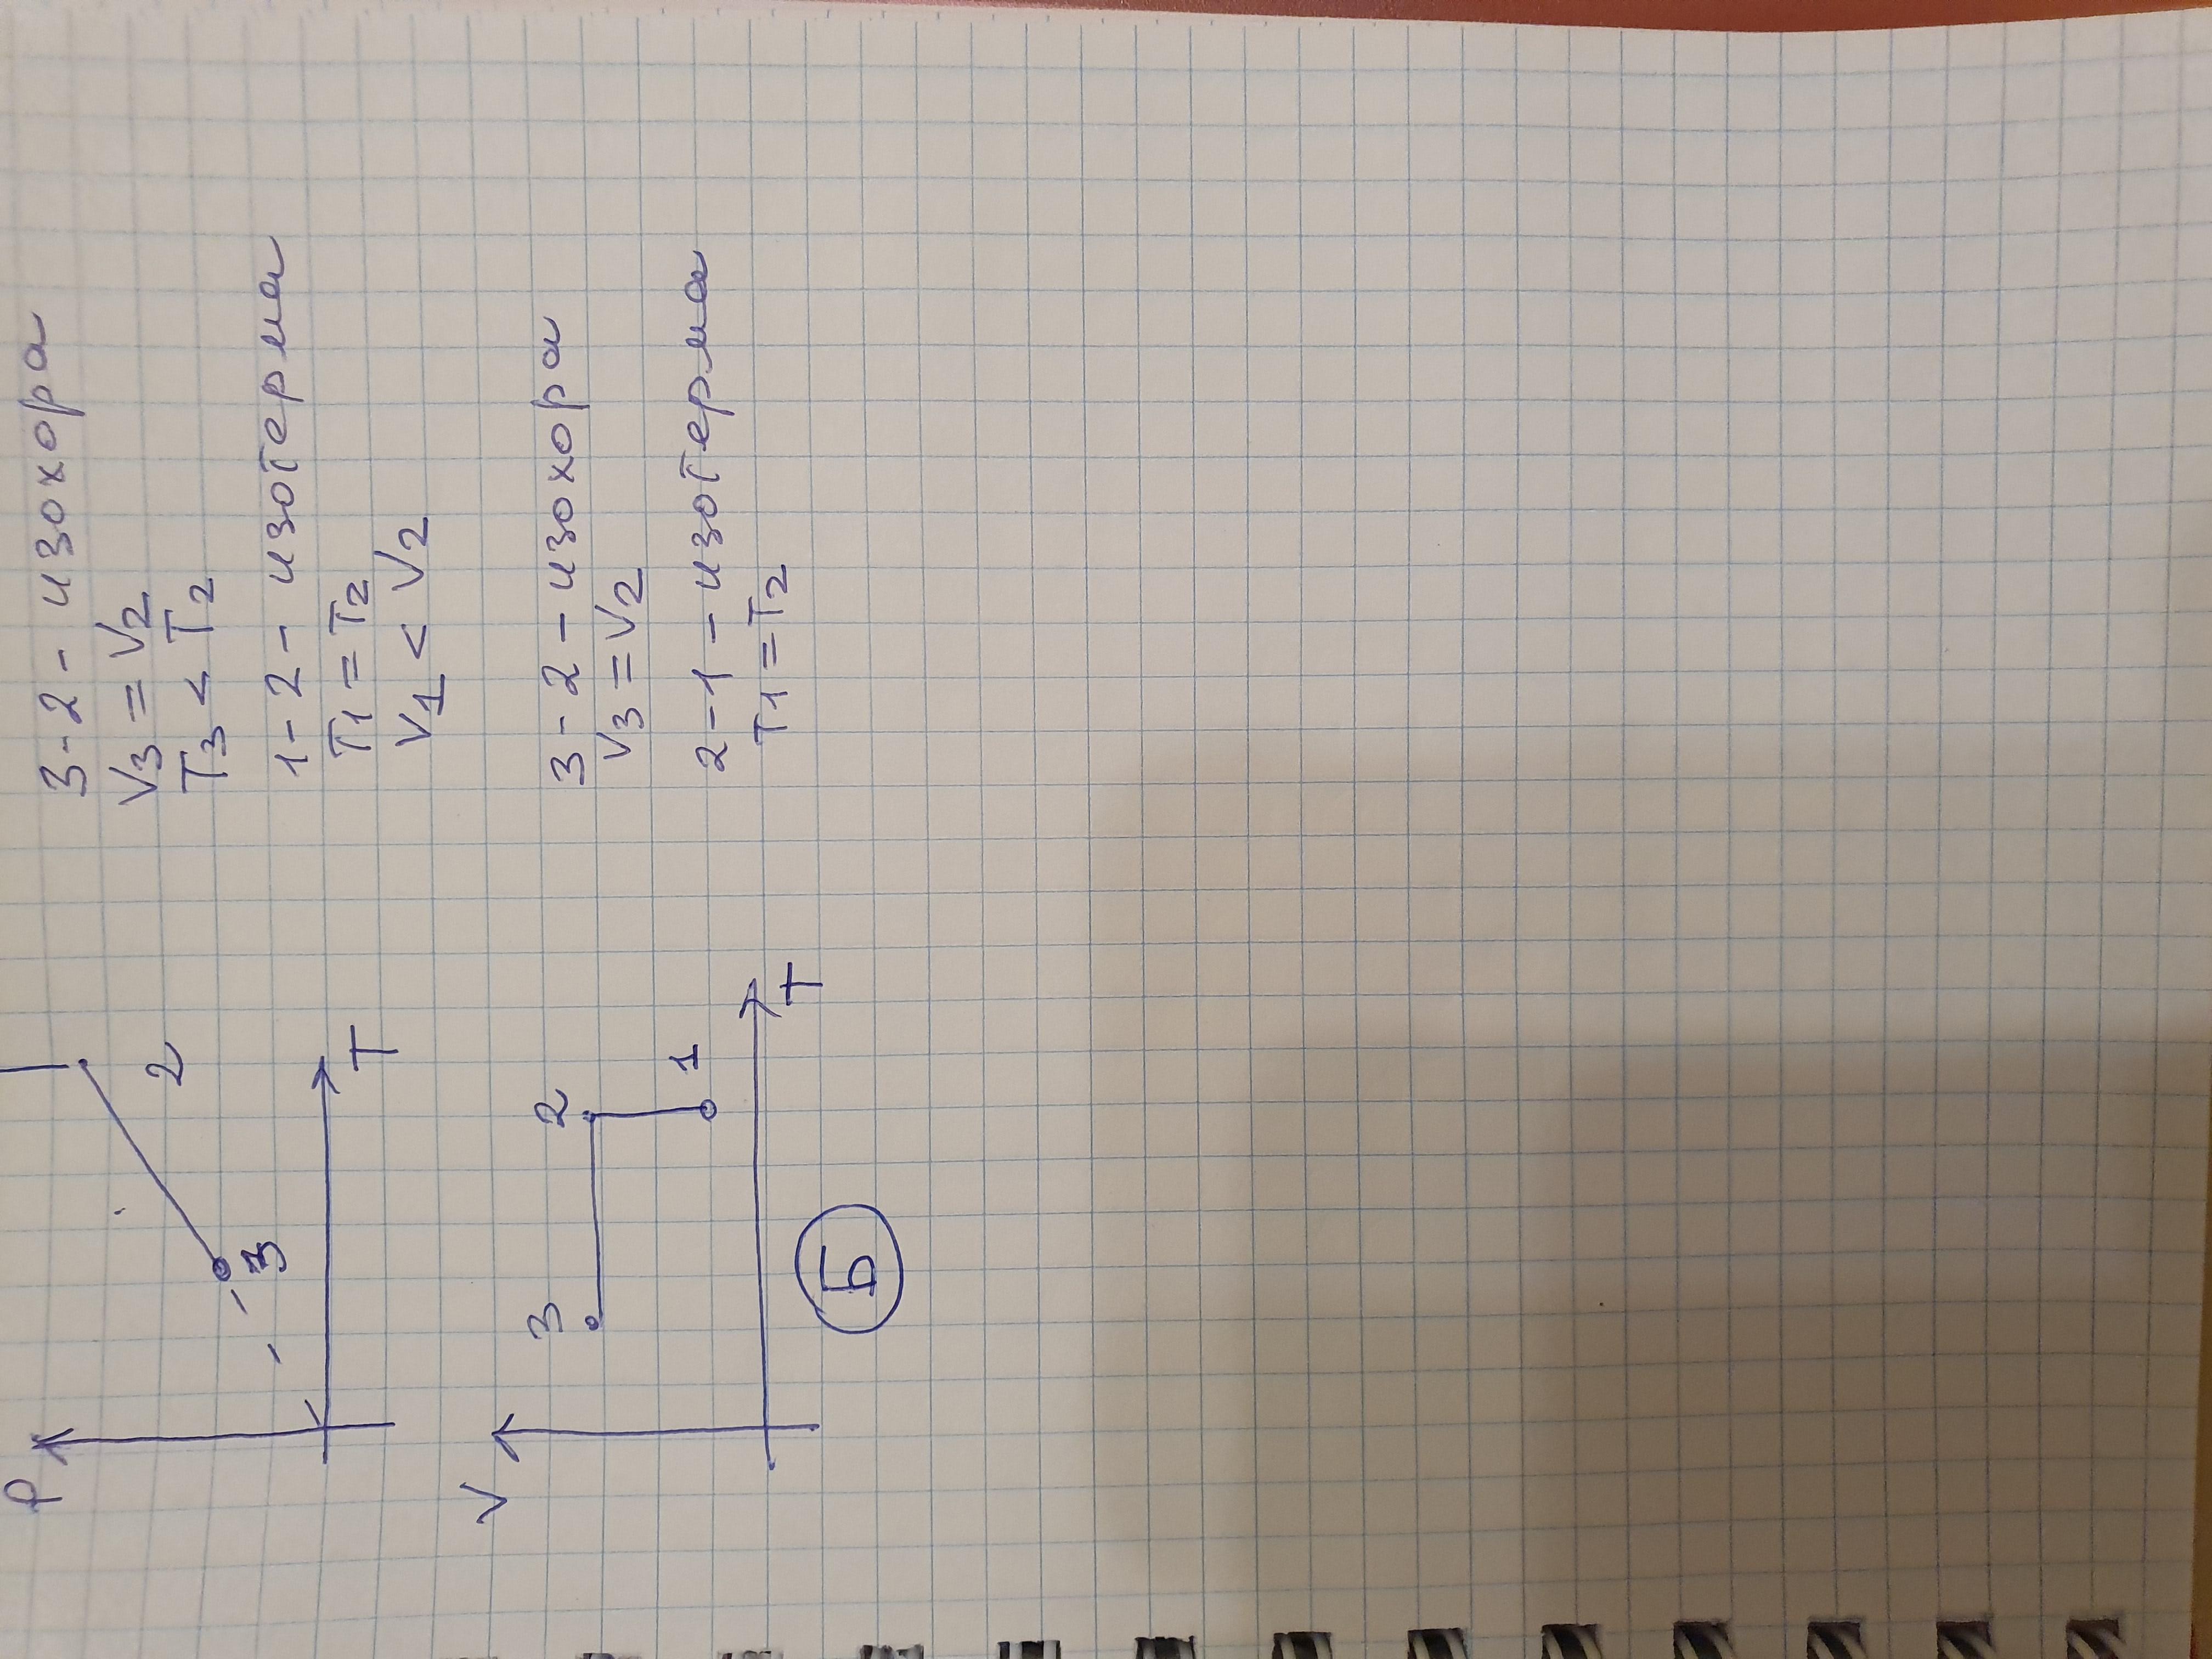 P
2
3
T
3-2-изохора
V3=V2
T3<T2
1-2-изотерма
T1=T2
V1<V2
V
3
2
1
T
Б
3-2-изохора
V3=V2
2-1-изотерма
T1=T2